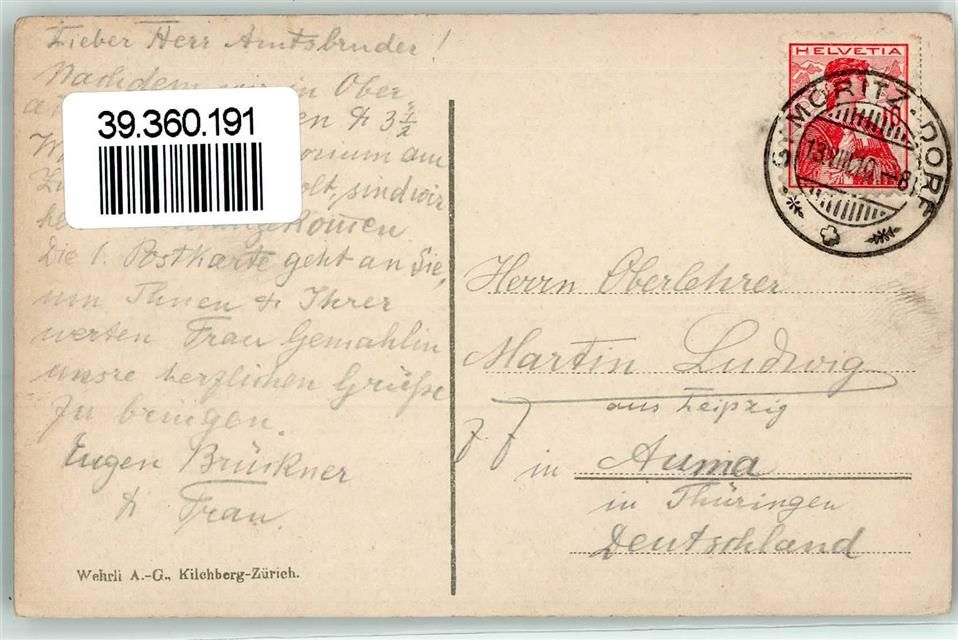 Lieber Herr Amtsbruder!
Nachdem wir in Ober,
en & 3½
orium am
olt, sind wir
angekom̅en
Die 1. Postkarte geht an Sie,
um Ihnen & Ihrer
werten Frau Gemahlin
unsre herzlichen Grüße
zu bringen.
Eugen Brückner
& Frau.
Wehrli A.-G., Kilchberg-Zürich.
39.360.191
HELVETIA
ST. MORITZ-DORF
13.VIII.10.-8
Herrn Oberlehrer
Martin Ludwig
aus Leipzig
z. Z.
in Auma
in Thüringen
Deutschland